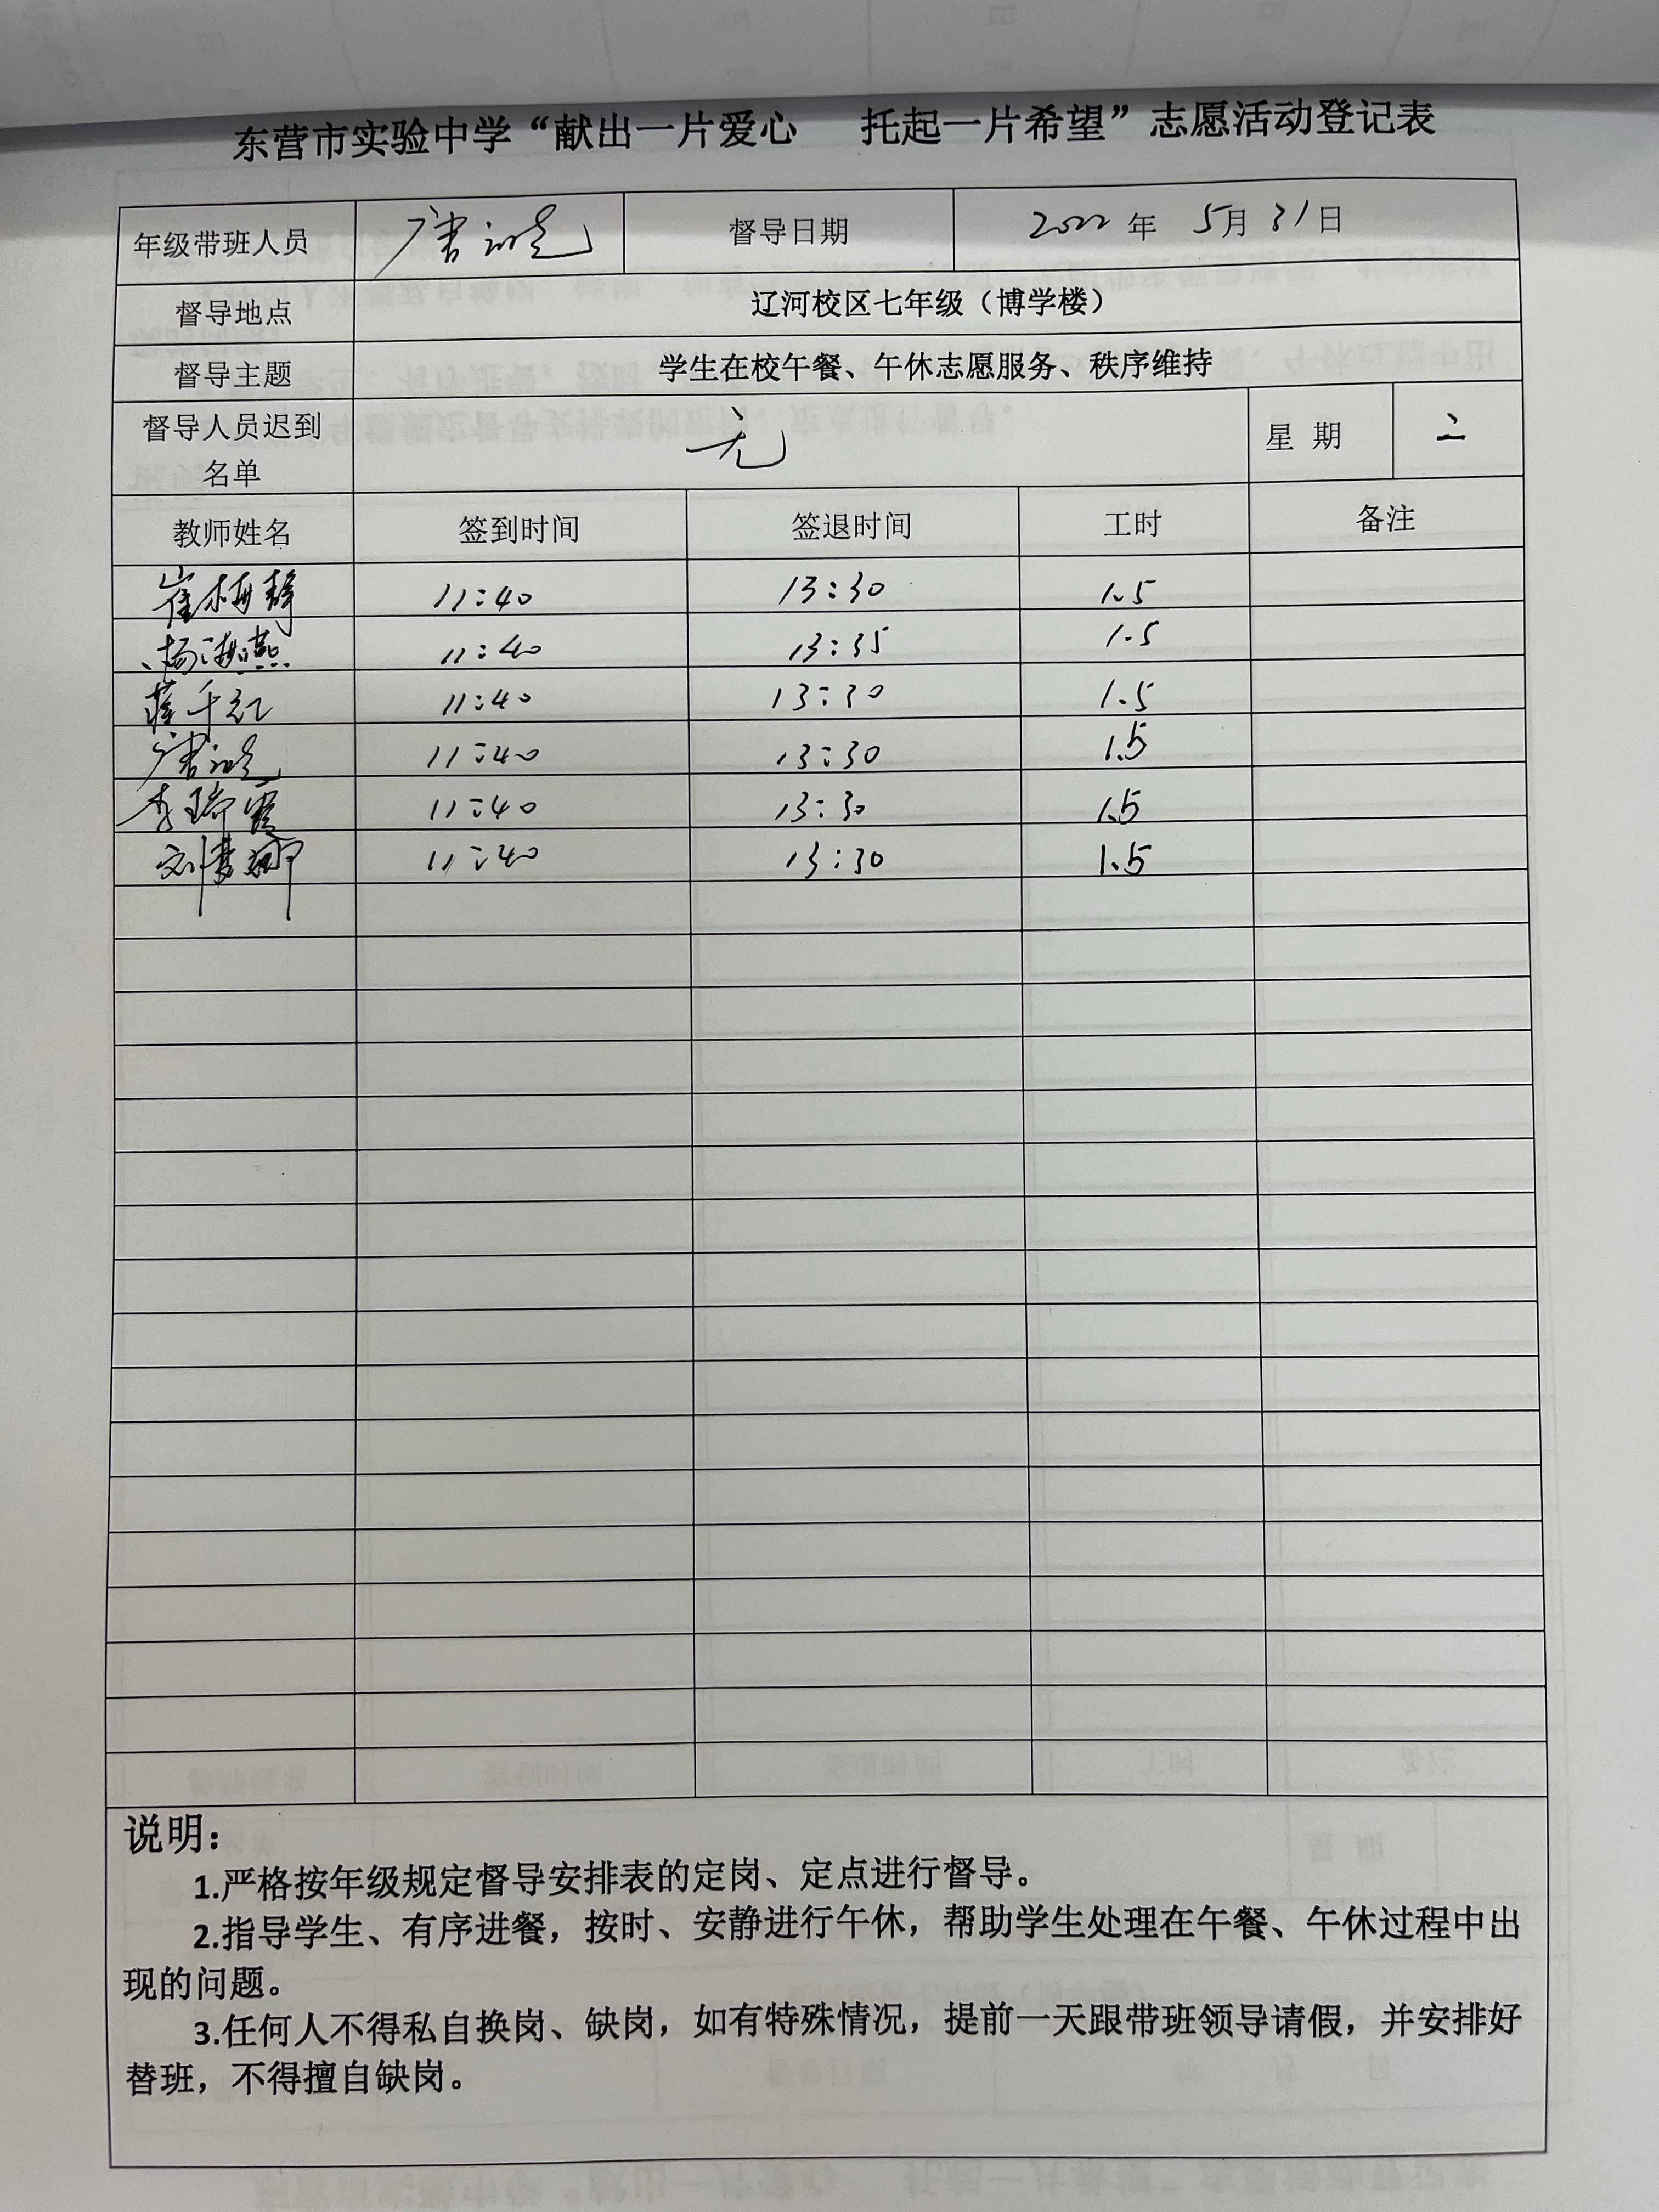 东营市实验中学“献出一片爱心 托起一片希望”志愿活动登记表
年级带班人员 唐 督导日期 2022 年 5月 31日
督导地点 辽河校区七年级（博学楼）
督导主题 学生在校午餐、午休志愿服务、秩序维持
督导人员迟到名单 无 星 期 二
教师姓名 签到时间 签退时间 工时 备注
崔梅静 11:40 13:30 1.5
杨海燕 11:40 13:35 1.5
薛千红 11:40 13:30 1.5
唐 11:40 13:30 1.5
李瑞霞 11:40 13:30 1.5
刘梦娜 11:40 13:30 1.5
说明：
1.严格按年级规定督导安排表的定岗、定点进行督导。
2.指导学生、有序进餐，按时、安静进行午休，帮助学生处理在午餐、午休过程中出
现的问题。
3.任何人不得私自换岗、缺岗，如有特殊情况，提前一天跟带班领导请假，并安排好
替班，不得擅自缺岗。